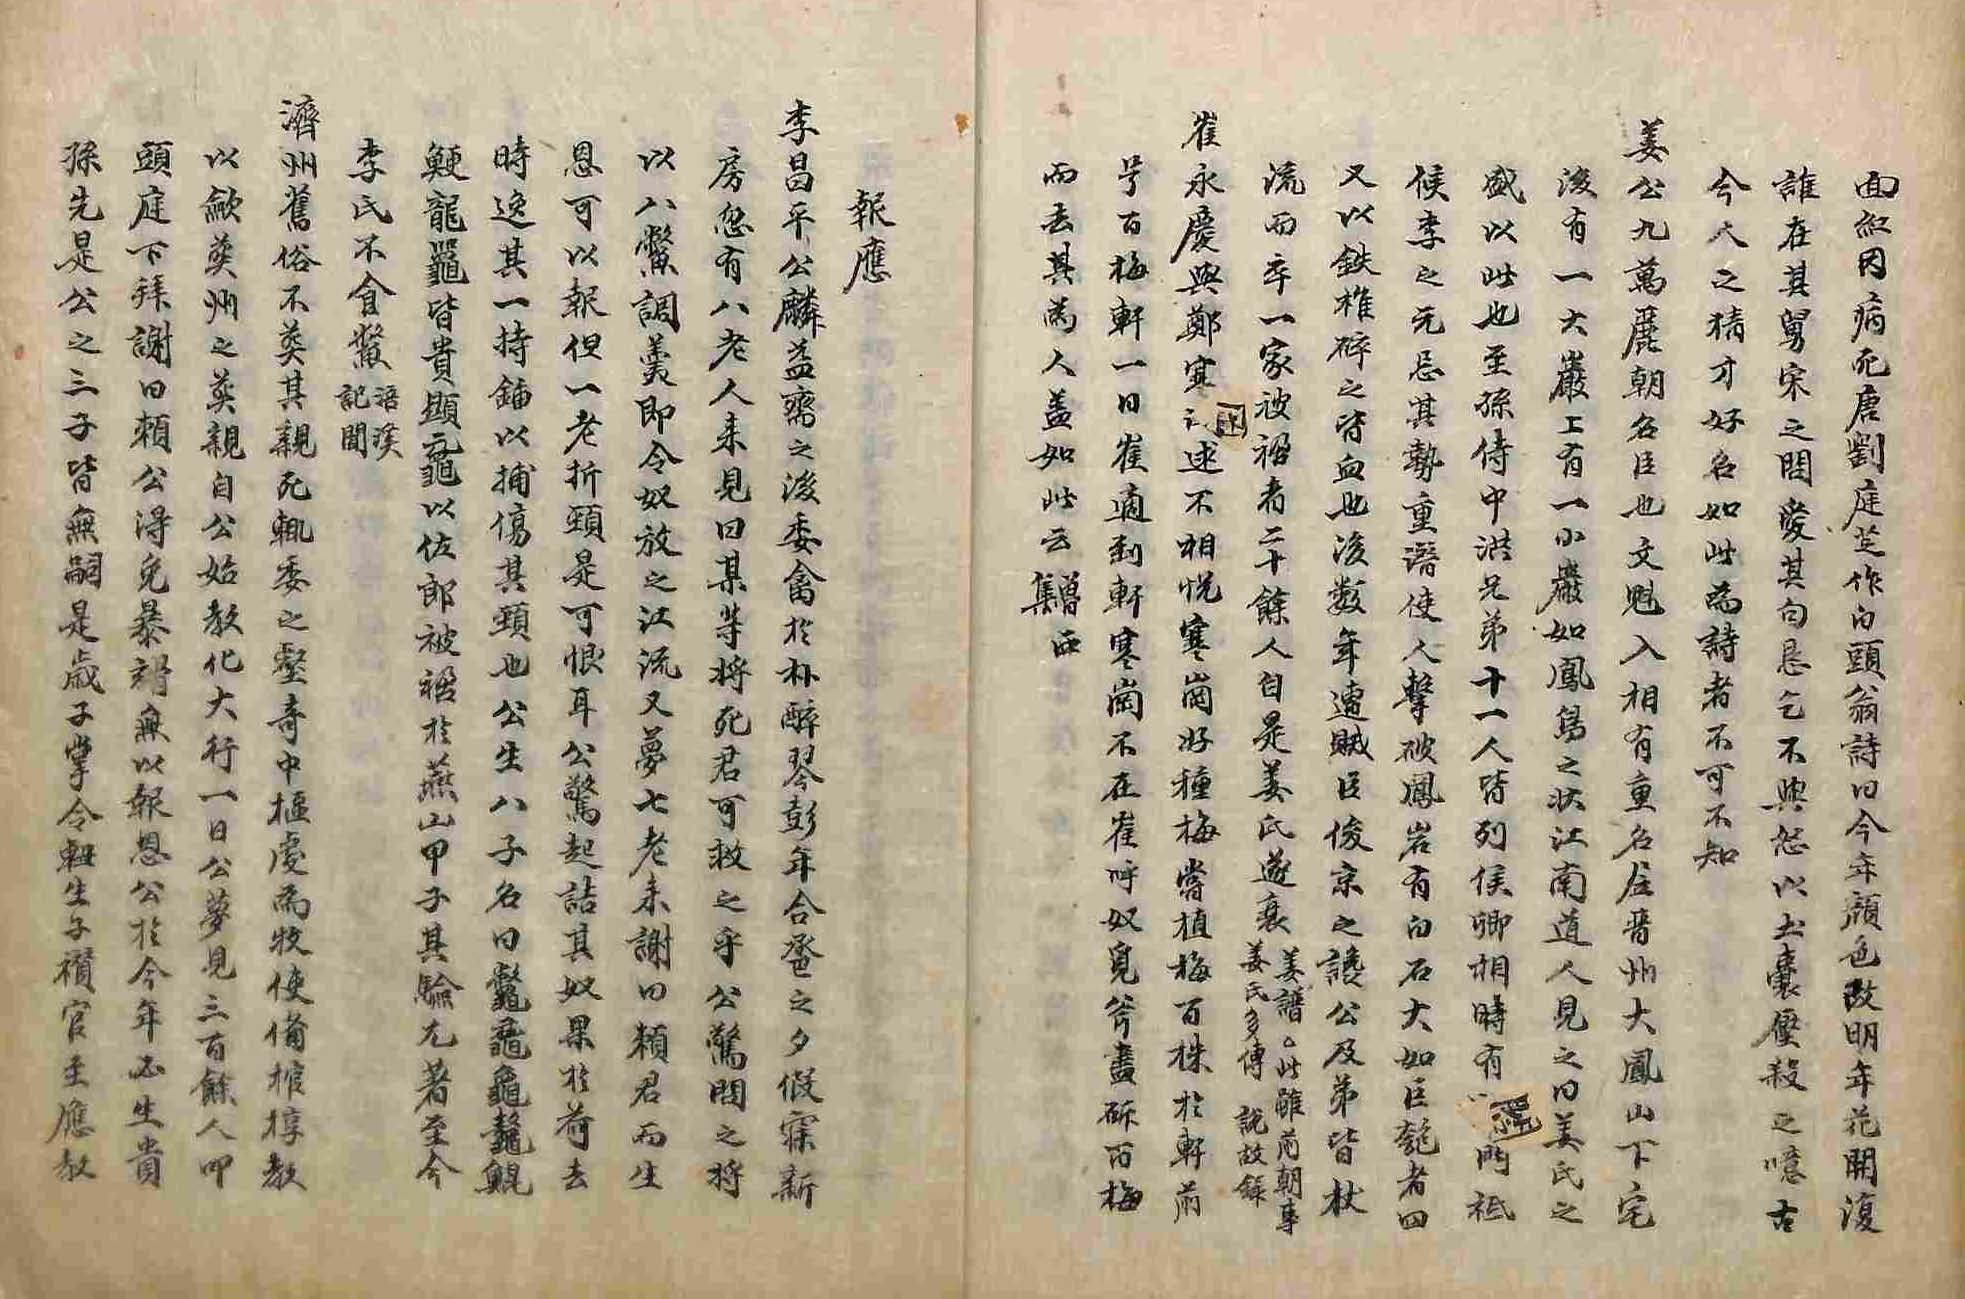 面紅因病死唐劉庭芝作白頭翁詩曰今年顏色改明年花開復
誰在其舅宋之問愛其句恳乞不與怒以土囊壓殺之噫古
今人之猜才好名如此為詩者不可不知
姜公九萬麗朝名臣也文魁入相有重名居晋州大鳳山下宅
後有一大巖上有一小巖如鳳鳥之状江南道人見之曰姜氏之
盛以此也至孫侍中洪兄弟十一人皆列侯卿相時有 門祗
候李之元忌其勢重潛使人擊破鳳岩有白石大如巨瓮者四
又以鉄椎碎之皆血也後数年遭賊臣俊京之讒公及弟皆杖
流而卒一家被禍者二十餘人自是姜氏遂衰 姜譜。此雖前朝事姜氏多傳 說故錄
崔永慶與鄭寒 逑不相悅寒崗好種梅嘗植梅百株於軒前
号百梅軒一日崔適到軒寒崗不在崔呼奴覓斧盡斫百梅
而去其為人盖如此云
報應
李昌平公麟益齋之後委禽於朴醉琴彭年合巹之夕假寐新
房忽有八老人来見曰某等将死君可救之乎公驚問之将
以八鱉調羹即令奴放之江流又夢七老来謝曰賴君而生
恩可以報但一老折頸是可恨耳公驚起詰其奴果於荷去
時逸其一持鍤以捕傷其頸也公生八子名曰鼇龜鼈鯤
鯁龍黿皆貴顯黿以佐郎被禍於燕山甲子其驗尤著至今
李氏不食鱉 語溪記聞
濟州舊俗不葬其親死輒委之壑奇中樞虔為牧使備棺椁教
以歛葬州之葬親自公始教化大行一日公夢見三百餘人叩
頭庭下拜謝曰賴公得免暴 無以報恩公於今年必生貴
孫先是公之三子皆無嗣是歲子掌令軸生子禶官至應教